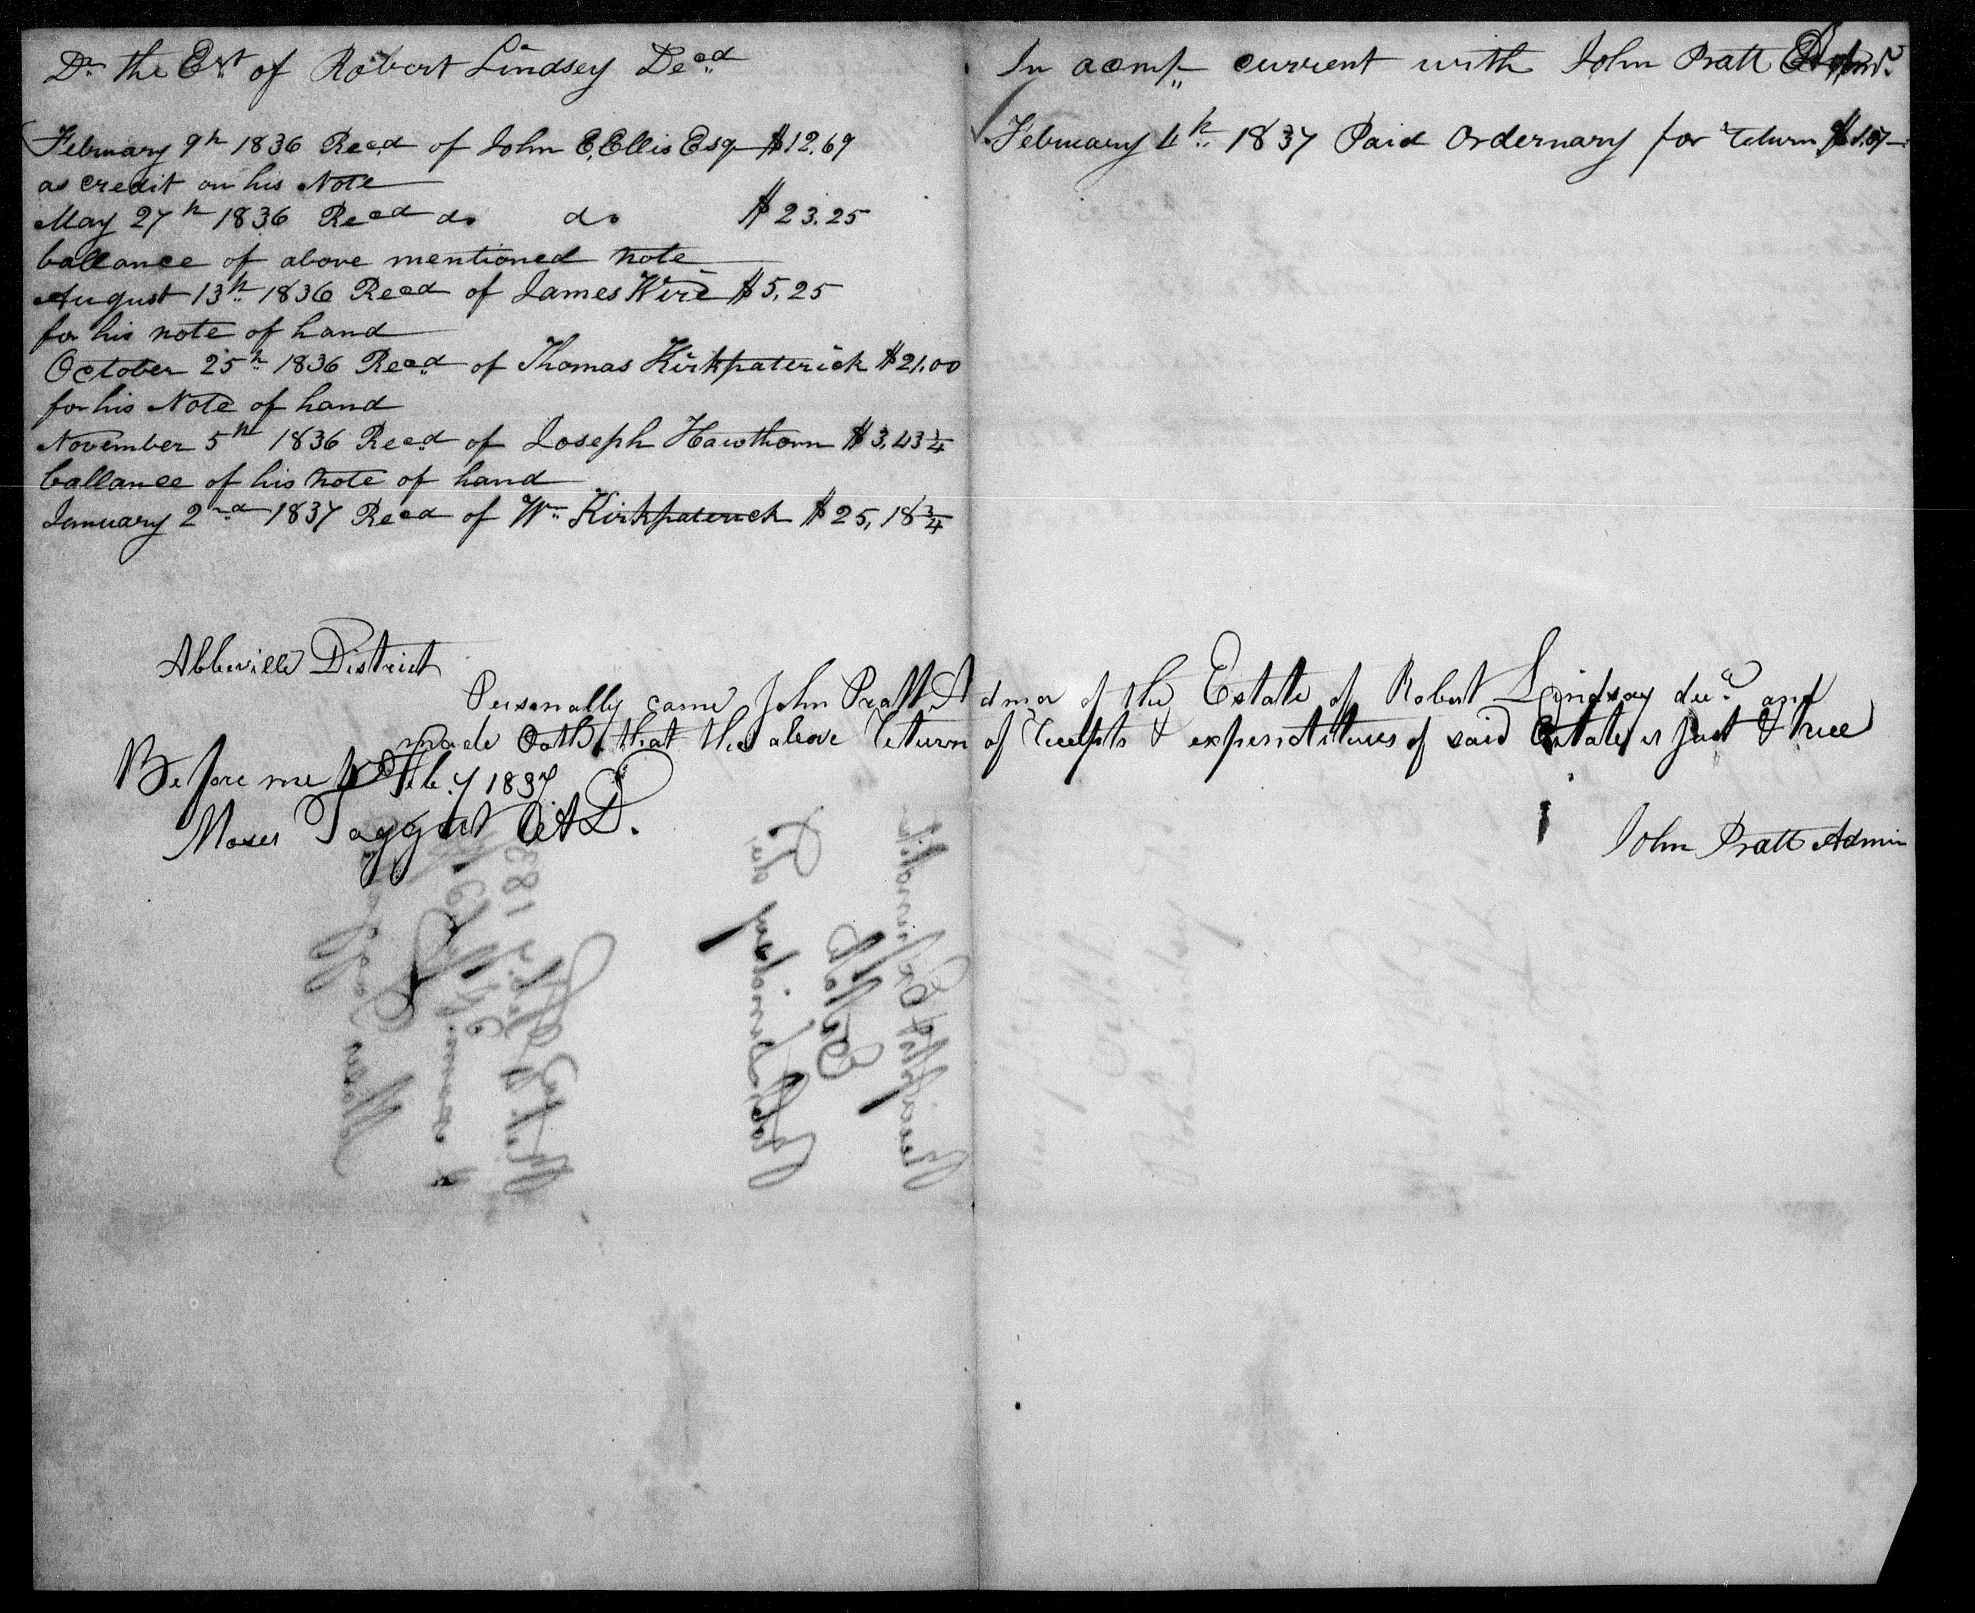 Dr the Est of Robert Lindsey Decd
February 9th 1836 Recd of John E. Ellis Esq $12.69
as credit on his Note
May 27th 1836 Recd do do $23.25
ballance of above mentioned note
August 13th 1836 Recd of James Wire $5,25
for his note of hand
October 25th 1836 Recd of Thomas Kirkpaterick $21,00
for his Note of hand
November 5th 1836 Recd of Joseph Hawthorn $3,43 1/4
ballance of his note of hand
January 2nd 1837 Recd of Wm Kirkpaterick $25,18 3/4
In acompt current with John Pratt Admr.
February 4th 1837 Paid Ordernary for return
Abbeville District
Personally came John Pratt Admor of the Estate of Robert Lindsay decd and
made Oath that the above return of receipts & expenditures of said Estate is just & true
Before me Feb.y 1837
Moses Taggart O.A.D.
John Pratt Admin